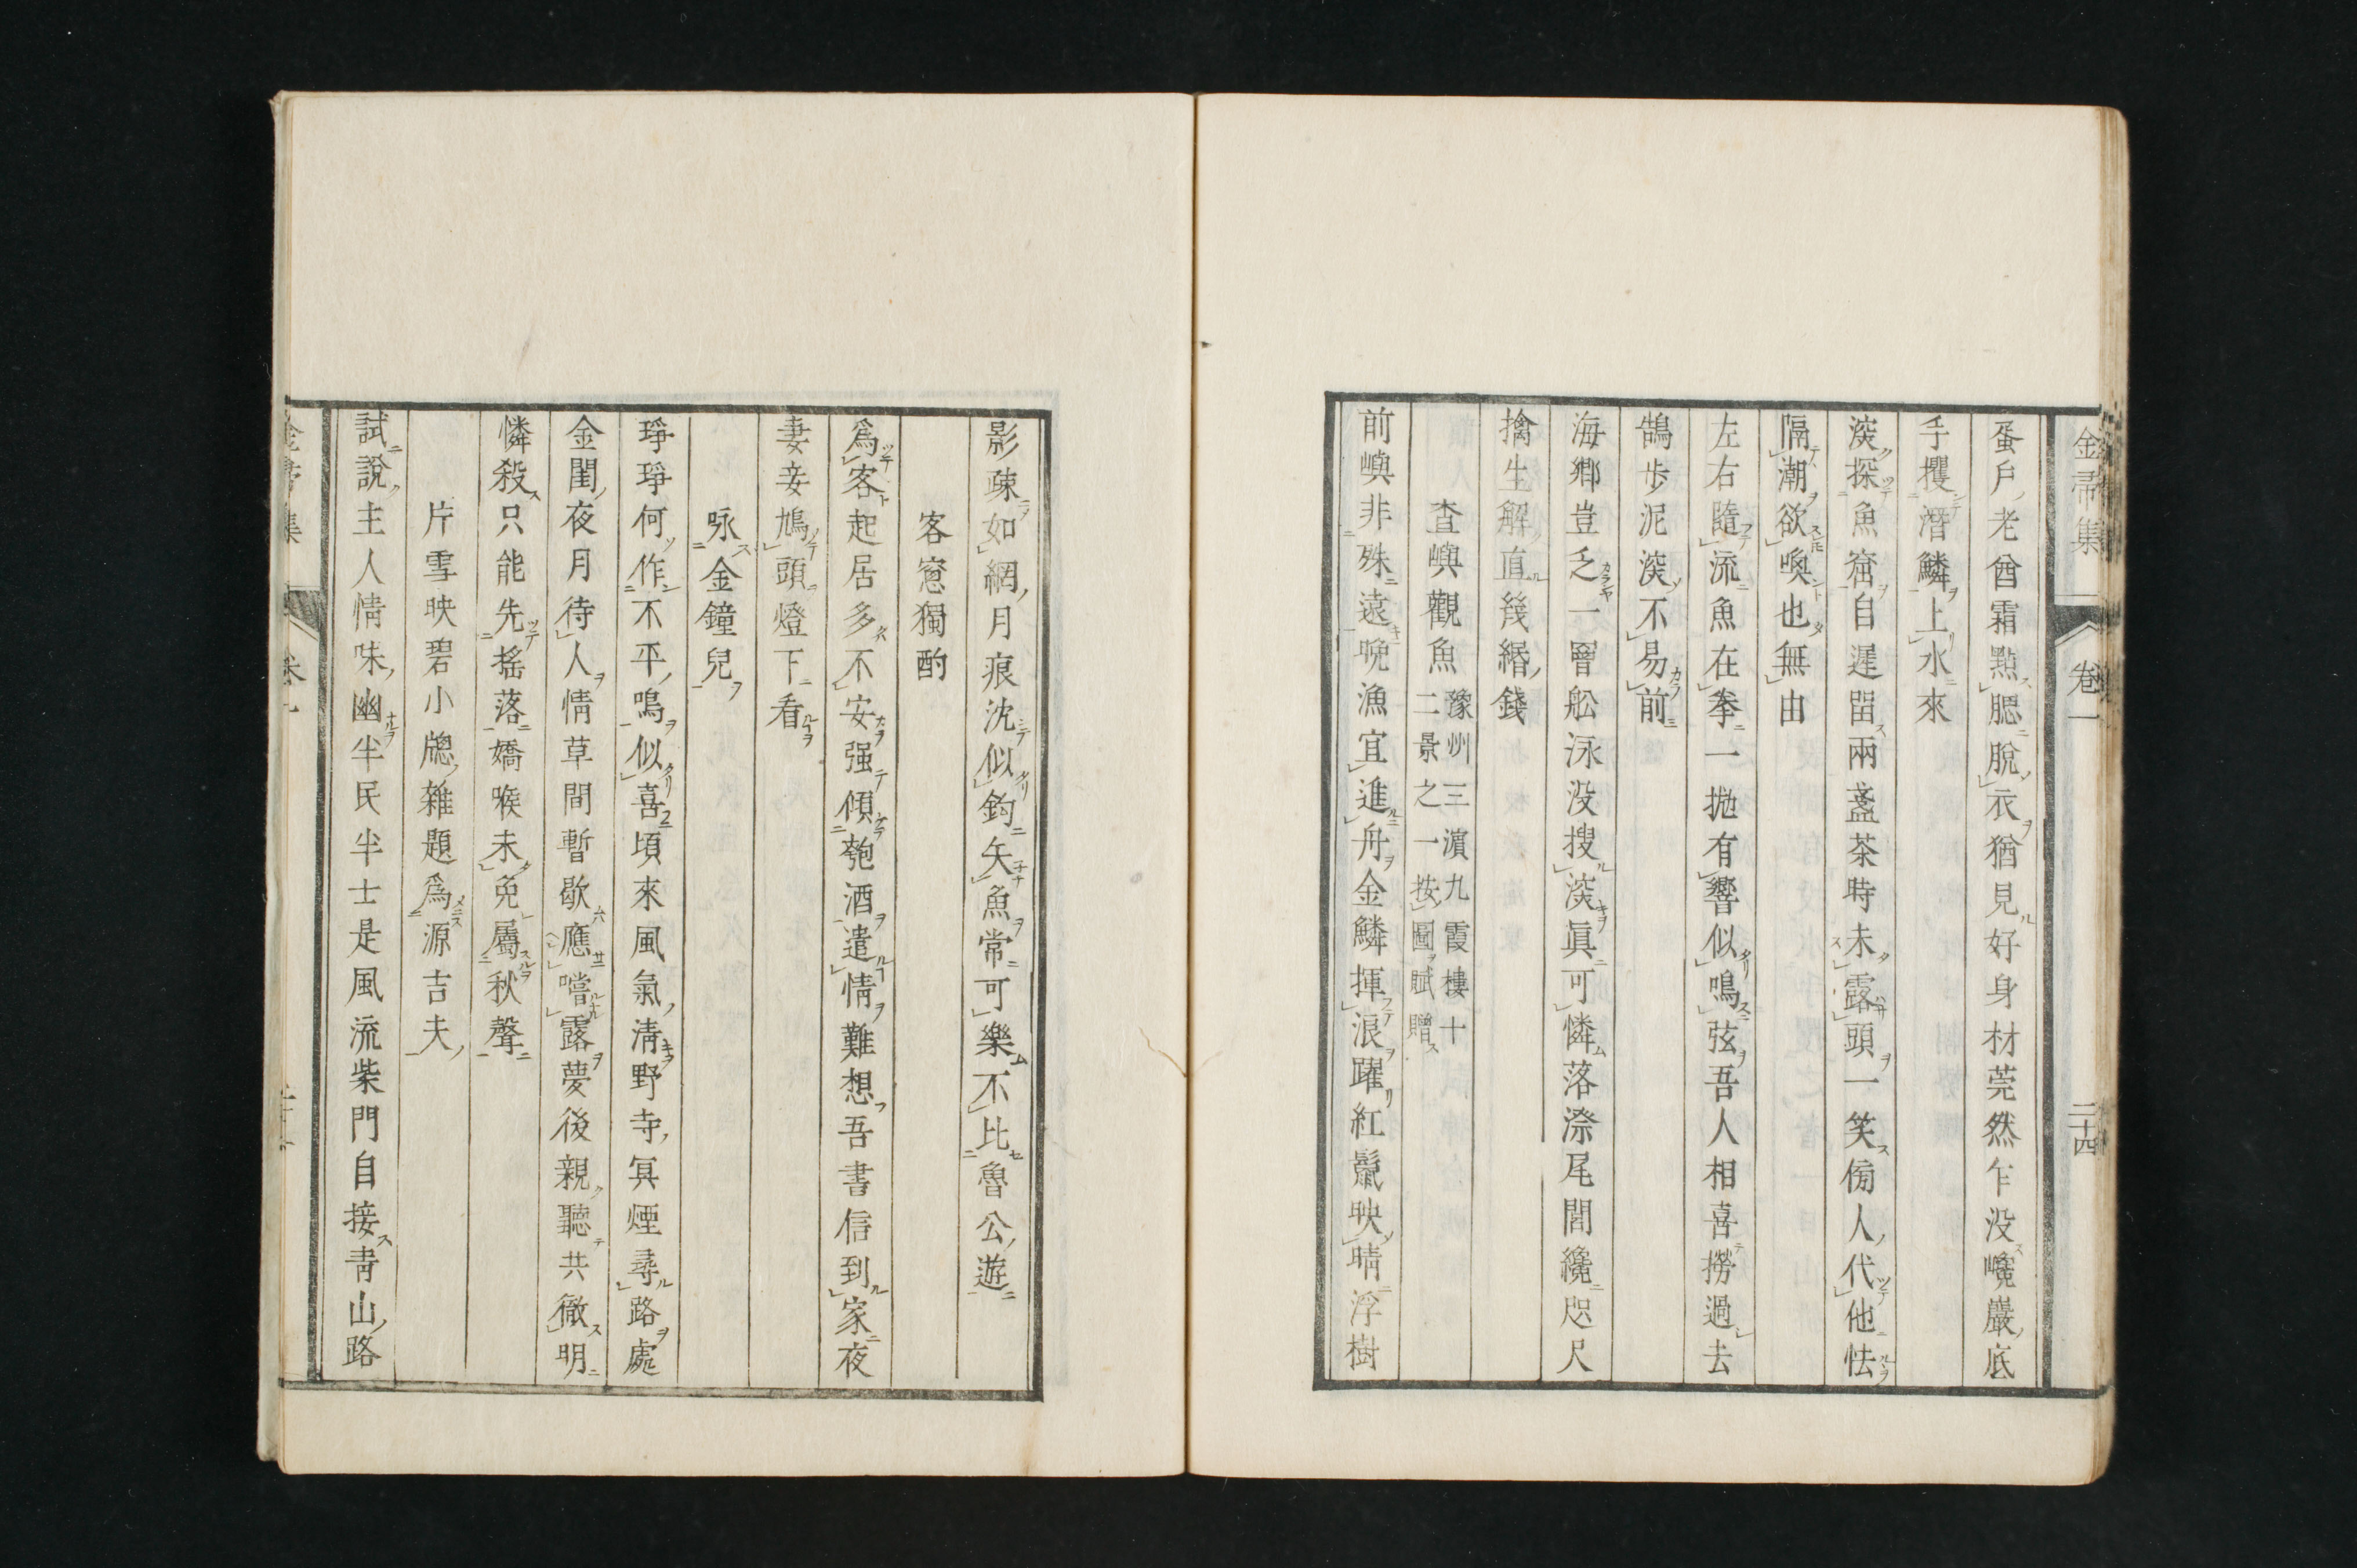 金帚集 卷一 二十四
蛋戶老酋霜點腮脫衣猶見好身材莞然乍没巉巖底
手攫潛鱗上水來
深探魚窟自遲留兩盞茶時未露頭一笑傍人代他怯
隔潮欲喚也無由
左右隨流魚在拳一拋有響似鳴弦吾人相喜撈過去
鵠步泥深不易前
海鄉豈乏一罾舩泳没搜深眞可憐落漈尾閭纔咫尺
擒生解直幾緡錢
査嶼觀魚豫州三濵九霞樓十二景之一按圖賦贈
前嶼非殊遠晚漁宜進舟金鱗揮浪躍紅鬣映晴浮樹
影疎如網月痕沈似鈎矢魚常可樂不比魯公遊
客窻獨酌
爲客起居多不安强傾匏酒遣情難想吾書信到家夜
妻妾鳩頭燈下看
咏金鐘兒
琤琤何作不平鳴似喜頃來風氣淸野寺冥煙尋路處
金閨夜月待人情草間暫歇應嚐露夢後親聽共徹明
憐殺只能先搖落嬌喉未免屬秋聲
片雪映碧小牕雜題爲源吉夫
試說主人情味幽半民半士是風流柴門自接靑山路